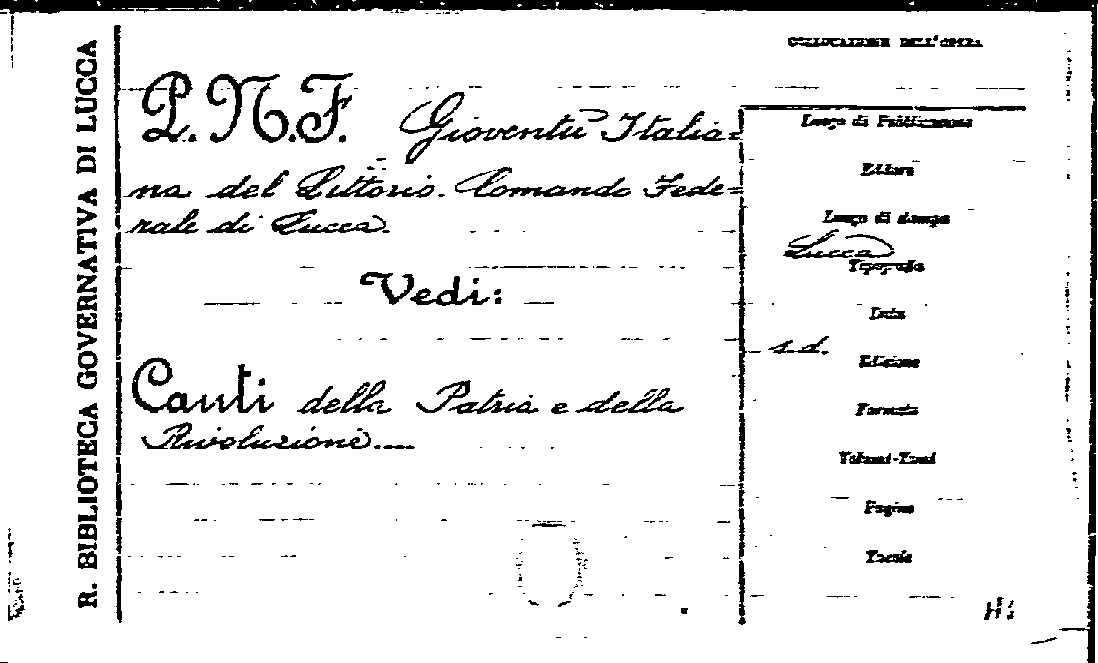 R. BIBLIOTECA GOVERNATIVA DI LUCCA
COLLOCAZIONE DELL'OPERA
P.N.F. Gioventù Italia=
na del Littorio. Comando Fede=
rale di Lucca.
Vedi:
Canti della Patria e della
Rivoluzione....
Luogo di Pubblicazione
Editore
Luogo di stampa
Lucca
Tipografia
Data
s.d.
Edizione
Formato
Volumi-Tomi
Pagine
Tavole